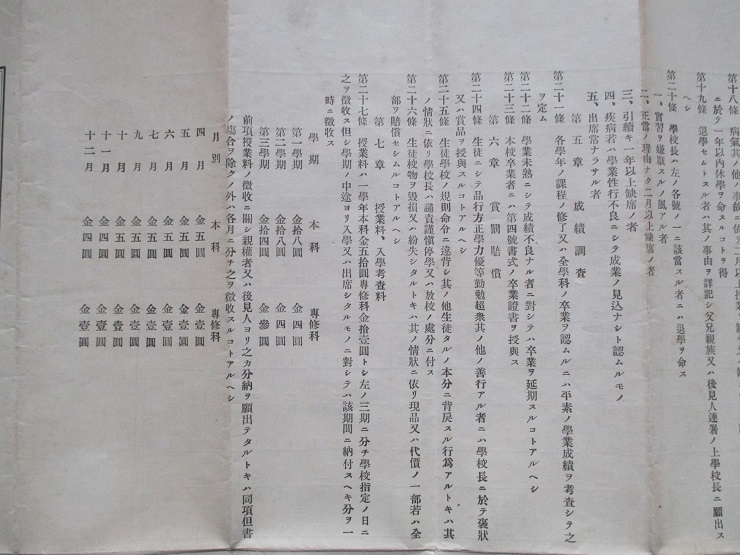 第十八條 病氣其ノ他ノ事故ニ依リ二月以上授業ヲ
ニ於テ一年以內休學ヲ命スルコトヲ得
第十九條 退學セムトスル者ハ其ノ事由ヲ詳記シ父兄親族又ハ後見人連署ノ上學校長ニ願出ス
ヘシ
第二十條 學校長ハ左ノ各號ノ一ニ該當スル者ニハ退學ヲ命ス
一、實習ヲ嫌厭スルノ風アル者
二、正當ノ理由ナク二月以上缺席ノ者
三、引續キ一年以上缺席ノ者
四、疾病若ハ學業性行不良ニシテ成業ノ見込ナシト認ムルモノ
五、出席常ナラサル者
第五章 成績調査
第二十一條 各學年ノ課程ノ修了又ハ全學科ノ卒業ヲ認ムルニハ平素ノ學業成績ヲ考査シテ之
ヲ定ム
第二十二條 學業未熟ニシテ成績不良ナル者ニ對シテハ卒業ヲ延期スルコトアルヘシ
第二十三條 本校卒業者ニハ第四號書式ノ卒業證書ヲ授與ス
第六章 賞罰賠償
第二十四條 生徒ニシテ品行方正學力優等勤勉超衆其ノ他ノ善行アル者ニハ學校長ニ於テ褒狀
又ハ賞品ヲ授與スルコトアルヘシ
第二十五條 生徒學校ノ規則命令ニ違背シ其ノ他生徒タルノ本分ニ背戾スル行爲アルトキハ其
ノ情狀ニ依リ學校長ハ譴責謹愼停學又ハ放校ノ處分ニ付ス
第二十六條 生徒校物ヲ毀損又ハ紛失シタルトキハ其ノ情狀ニ依リ現品又ハ代價ノ一部若ハ全
部ヲ賠償セシムルコトアルヘシ
第七章 授業料、入學考査料
第二十七條 授業料ハ一學年本科金五拾圓專修科金拾壹圓トシ左ノ三期ニ分チ學校指定ノ日ニ
之ヲ徵收ス但シ學期ノ中途ヨリ入學又ハ出席シタルモノニ對シテハ該期間ニ納付スヘキ分ヲ一
時ニ徵收ス
學期 本科 專修科
第一學期 金拾八圓 金四圓
第二學期 金拾八圓 金四圓
第三學期 金拾四圓 金參圓
前項授業料ノ徵收ニ關シ親權者又ハ後見人ヨリ之カ分納ヲ願出テタルトキハ同項但書
ノ塲合ヲ除クノ外ハ各月ニ分チ之ヲ徵收スルコトアルヘシ
月別 本科 專修科
四月 金五圓 金壹圓
五月 金五圓 金壹圓
六月 金五圓 金壹圓
七月 金五圓 金壹圓
九月 金五圓 金壹圓
十月 金五圓 金壹圓
十一月 金四圓 金壹圓
十二月 金四圓 金壹圓